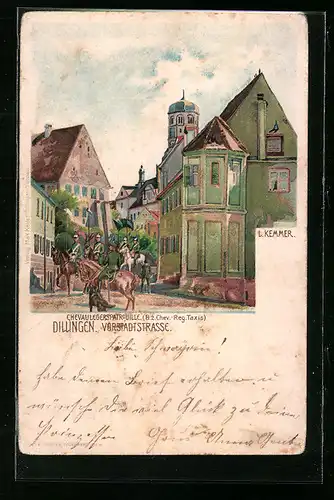 L. KEMMER.
CHEVAULEGERSPATROUILLE. (8. ż. Chev.-Reg. Taxis)
DILLINGEN. VORSTADTSTRASSE.
Liebe Schwägerin!
habe deinen Brief erhalten u
wünsche dir viel Glück zu deiner
Prinzessin
Gruß Anna